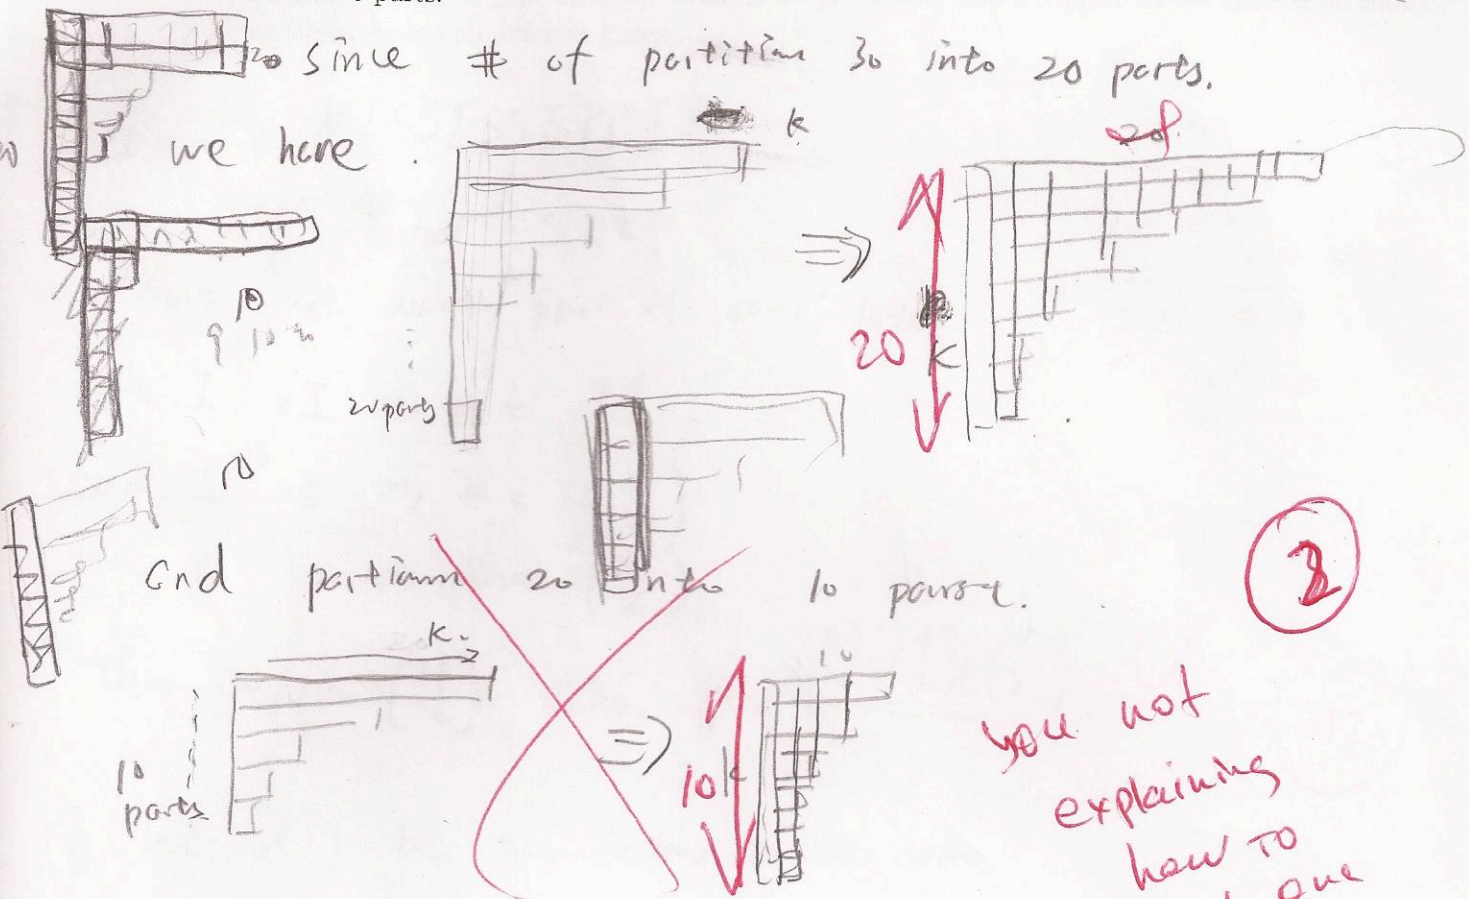 parts.
20 since # of partition 30 into 20 parts.
we have . k
20
10
20 k
20 parts
10
and partiann 20 into 10 parst.
k.
10
10
parts
10 k
2
you not
explaining
how to
one